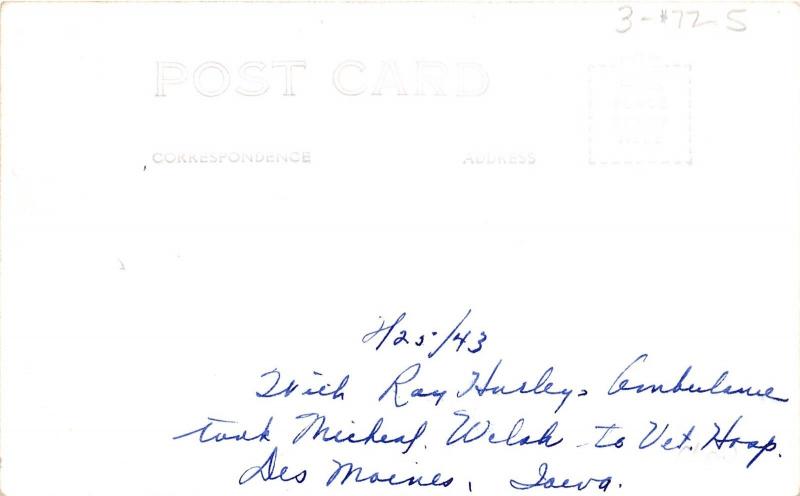 3-#72-5
POST CARD
PLACE
STAMP
HERE
CORRESPONDENCE ADDRESS
/25/43
With Ray Hurleys Ambulance
took Micheal Welsh to Vet. Hosp.
Des Moines, Iowa.